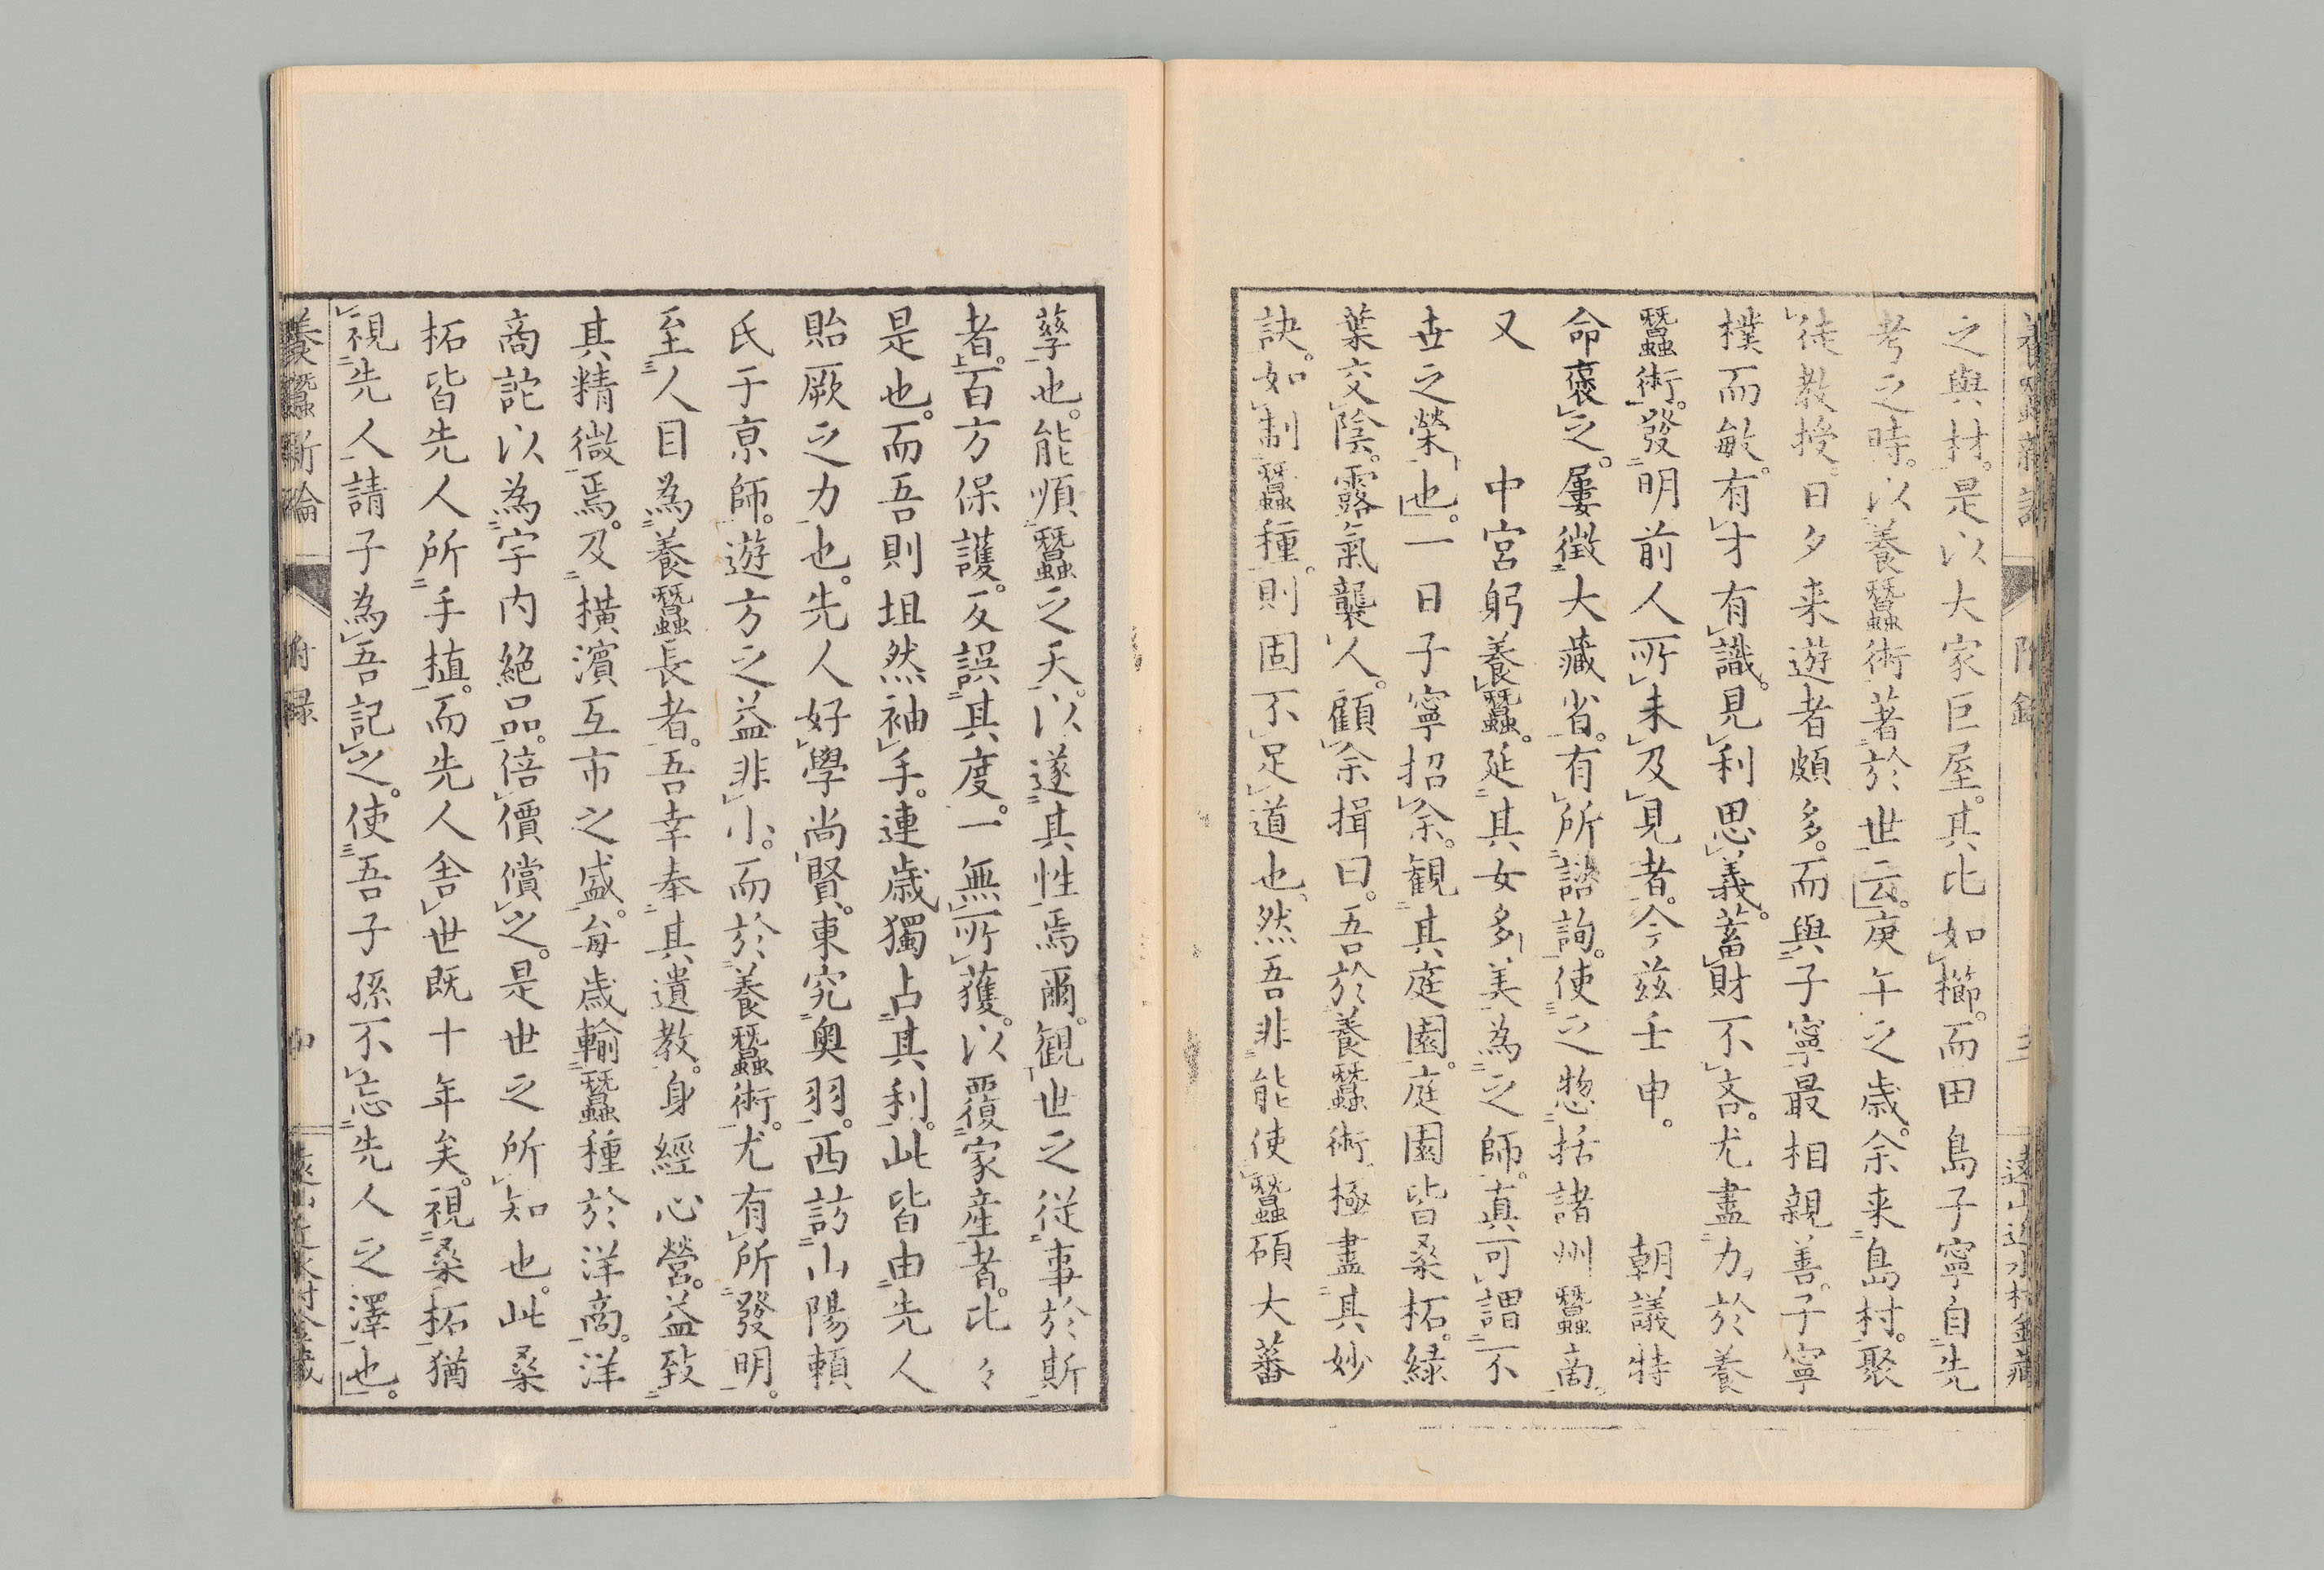 之與材。是以大家巨屋。其比如櫛。而田島子寧自先
考之時。以養蠶術著於世云。庚午之歳。余来島村。聚
徒教授。日夕来遊者頗多。而與子寧最相親善。子寧
樸而敏。有才有識。見利思義。蓄財不吝。尤盡力於養
蠶術。發明前人所未及見者。今茲壬申。朝議特
命褒之。屢徴大藏省。有所諮詢。使之惣括諸州蠶商。
又中宮躬養蠶。延其女多美為之師。真可謂不
世之榮也。一日子寧招余。観其庭園。庭園皆桑柘。緑
葉交陰。露氣襲人。顧余揖曰。吾於養蠶術極盡其妙
訣。如制蠶種。則固不足道也、然吾非能使蠶碩大蕃
孳也。能順蠶之天。以遂其性焉爾。観世之従事於斯
者。百方保護。反誤其度。一無所獲。以覆家産者。比々
是也。而吾則坦然袖手。連歳獨占其利。此皆由先人
貽厥之力也。先人好學尚賢。東究奥羽。西訪山陽頼
氏于京師。遊方之益非小。而於養蠶術。尤有所發明。
至人目為養蠶長者。吾幸奉其遺教。身經心營。益致
其精微焉。及横濱互市之盛。毎歳輸蠶種於洋商。洋
商詫以為宇内絶品。倍價償之。是世之所知也。此桑
柘皆先人所手植。而先人舎世既十年矣。視桑柘猶
視先人請子為吾記之。使吾子孫不忘先人之澤也。
養蠶新論 附録